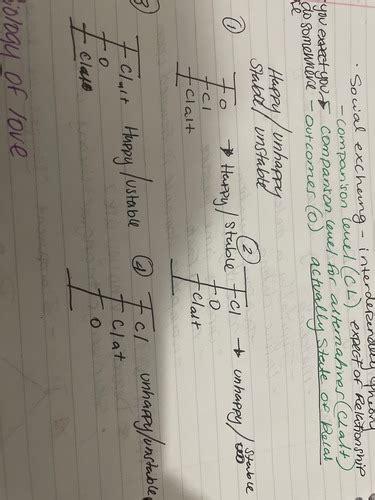 · Social exchung - interdependency theory
- comparison level (CL) expect of Relationship
you expect you → comparison level for alternative (CLalt)
go somewhere - outcomes (O) actually state of Relat
Happy/unhappy
Stable/unstable
① O
CL
CLalt → Happy/stable
② CL
O
CLalt → unhappy/stable
③ CLalt
O
Happy/ustable
④ CL
CLat
O
unhappy/unstable
iology of love